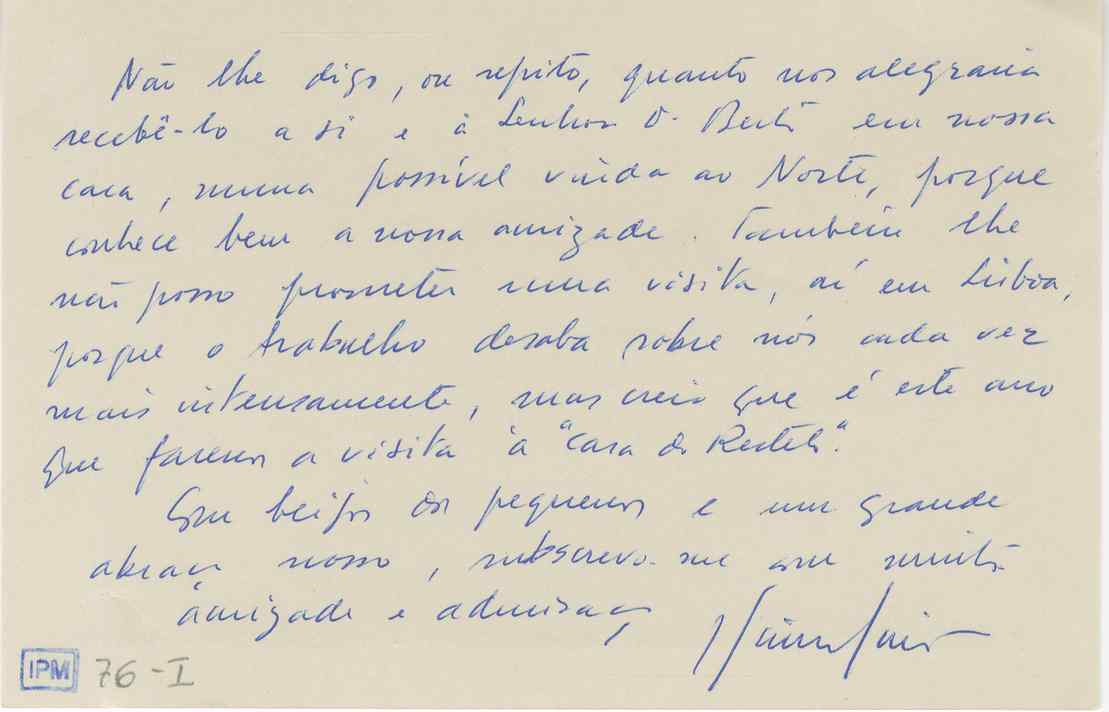 Não lhe digo, ou repito, quanto nos alegraria
recebê-lo a si e à Senhora D. Berta em nossa
casa, numa possível vinda ao Norte, porque
conhece bem a nossa amizade. Também lhe
não posso prometer uma visita, aí em Lisboa,
porque o trabalho desaba sobre nós cada vez
mais intensamente, mas creio que é este ano
que faremos a visita à "Casa do Restelo".
Com beijos dos pequenos e um grande
abraço nosso, subscrevo-me com muita
amizade e admiração
IPM 76-I